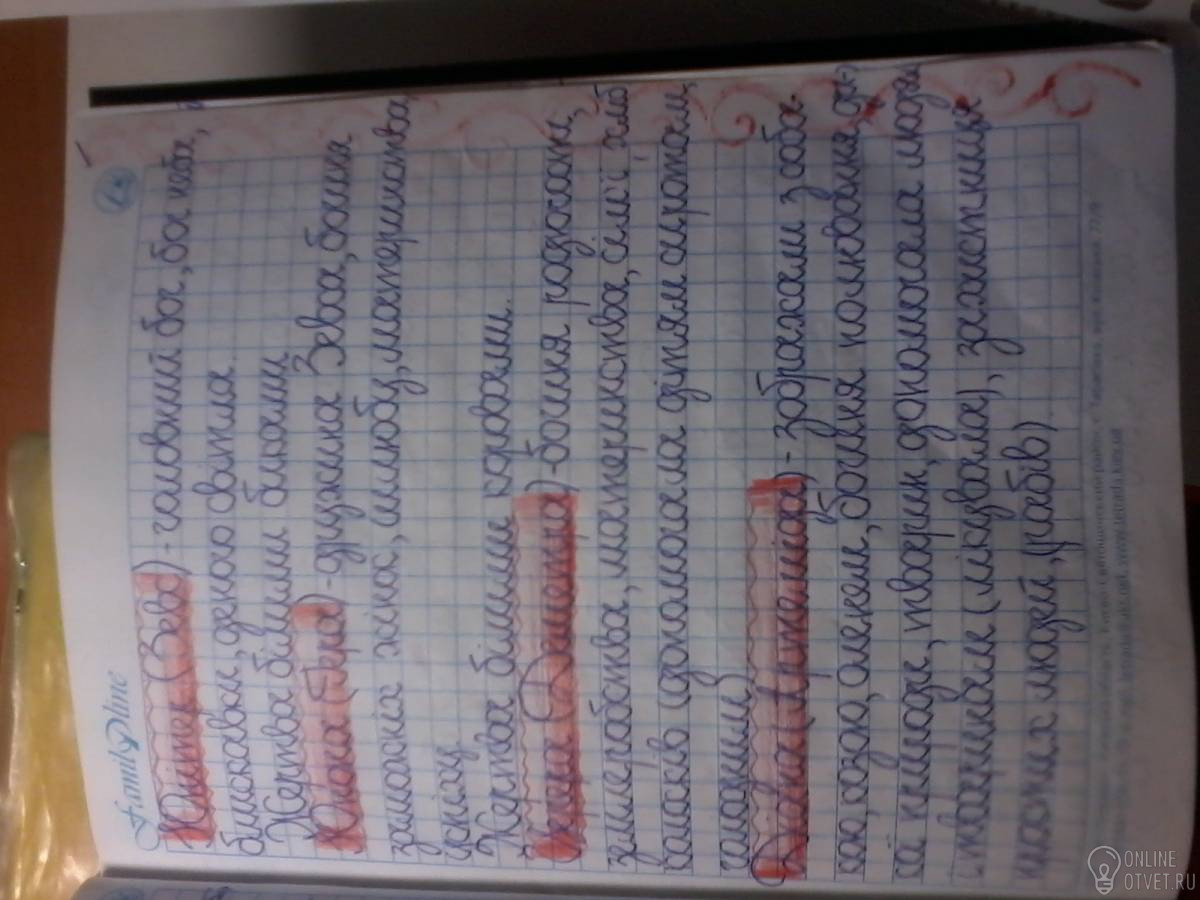 Family Line
Юпітер (Зевс) - головний бог, бог неба,
блискавки, денного світла.
Жертва білими биками
Юнона (Гера) - дружина Зевса, богиня
заміжніх жінок, шлюбу, материнства,
успіху.
Жертва білими коровами.
Церера (Деметра) - богиня родючості,
землеробства, материнства, сім'ї, хліб
колосків (допомогала дітям сиротам,
голодним)
Діана (Артеміда) - зображали з соба-
кою, козою, оленем, богиня полювання,
природи, тварин, допомогала людям
і тваринам (лікувала), захистниця
людей (рабів)
www.tetrada.kiev.ua
ONLINE
OTVET.RU